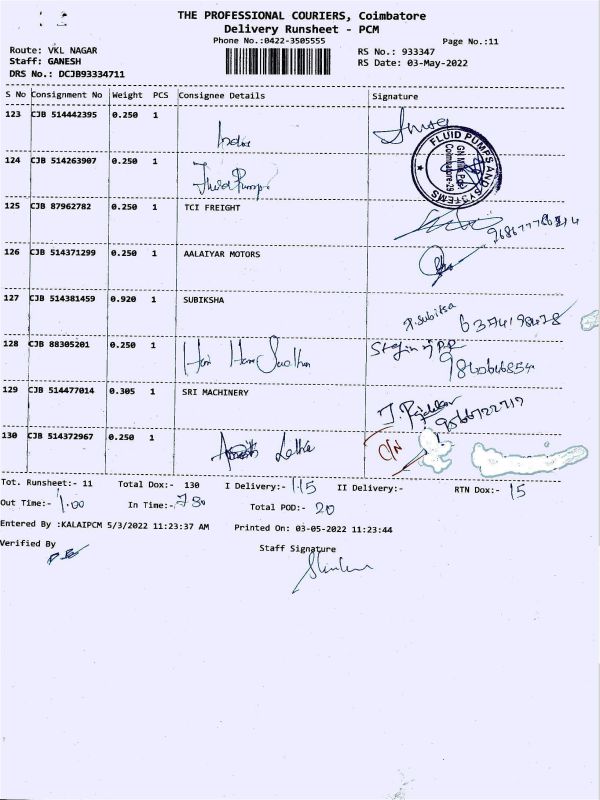 THE PROFESSIONAL COURIERS, Coimbatore
Delivery Runsheet - PCM
Phone No.:0422-3505555 Page No.:11
Route: VKL NAGAR RS No.: 933347
Staff: GANESH RS Date: 03-May-2022
DRS No.: DCJB93334711
S No Consignment No Weight PCS Consignee Details Signature
123 CJB 514442395 0.250 1
FLUID PUMPS AND SYSTEMS
124 CJB 514263907 0.250 1 Fluid Pumps
125 CJB 87962782 0.250 1 TCI FREIGHT
126 CJB 514371299 0.250 1 AALAIYAR MOTORS
127 CJB 514381459 0.920 1 SUBIKSHA
P. Subitsa 6374198428
128 CJB 88305201 0.250 1 Hari
129 CJB 514477014 0.305 1 SRI MACHINERY
130 CJB 514372967 0.250 1 Latha C/N
Tot. Runsheet:- 11 Total Dox:- 130 I Delivery:- 115 II Delivery:- RTN Dox:- 15
Out Time:- 1.00 In Time:- 7 30 Total POD:- 20
Entered By :KALAIPCM 5/3/2022 11:23:37 AM Printed On: 03-05-2022 11:23:44
Verified By
Staff Signature